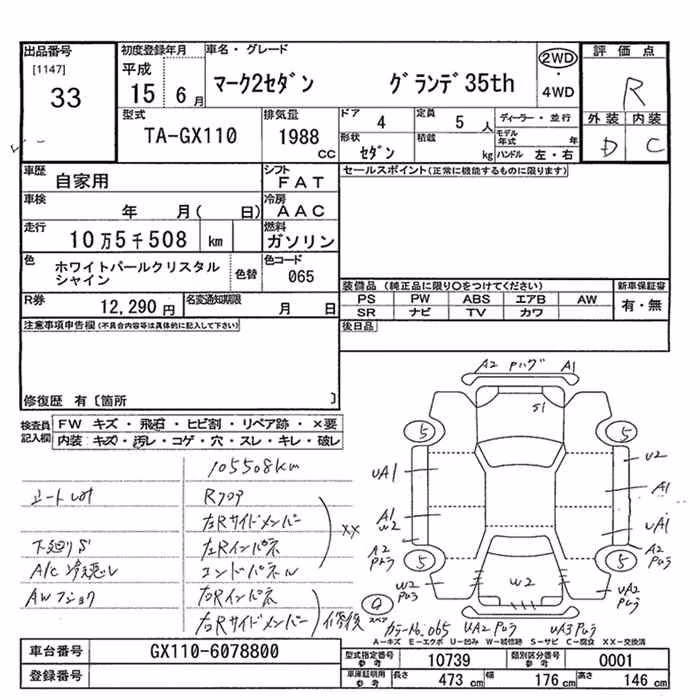 出品番号
[1147]
33
初度登録年月
平成
15 6月
車名・グレード
マーク2セダン グランデ35th
2WD
・
4WD
評価点
R
外装 内装
D C
型式
TA-GX110
排気量
1988
CC
ドア 4
定員 5人
形状
セダン
積載
kg
ディーラー・並行
モデル年式 年
ハンドル 左・右
車歴
自家用
シフト
FAT
車検
年 月( 日)
冷房
AAC
走行
10万5千508 km
燃料
ガソリン
色
ホワイトパールクリスタル
シャイン
色替
色コード
065
R券
12,290円
名変通知期限
月 日
セールスポイント(正常に機能するものに限ります)
装備品 (純正品に限り○をつけてください)
新車保証書
PS PW ABS エアB AW
有・無
SR ナビ TV カワ
後日品
注意事項申告欄(不具合内容等は具体的に記入して下さい)
修復歴 有〔箇所 〕
検査員
記入欄
FW キズ・飛石・ヒビ割・リペア跡・×要
内装 キズ・汚レ・コゲ・穴・スレ・キレ・破レ
105508km
Rフロア
右Rサイドメンバー
XX
下廻りS
左Rインパネ
A/C 冷え悪し
エンドパネル
右Rインパネ
右Rサイドメンバー
修復
A2 A1
S1
5 5
UA1
U2
A1
A1
W2
UA1
A2
A2
5 5
W2
W2
UA2
4
スペア
カラーNo.065 UA2 UA3
A-キズ E-エクボ U-凹み W-補修跡 S-サビ C-腐食 XX-交換済
車台番号
GX110-6078800
登録番号
型式指定番号
参考
10739
類別区分番号
参考
0001
車庫証明用
参考
長さ 473 cm
幅 176 cm
高さ 146 cm